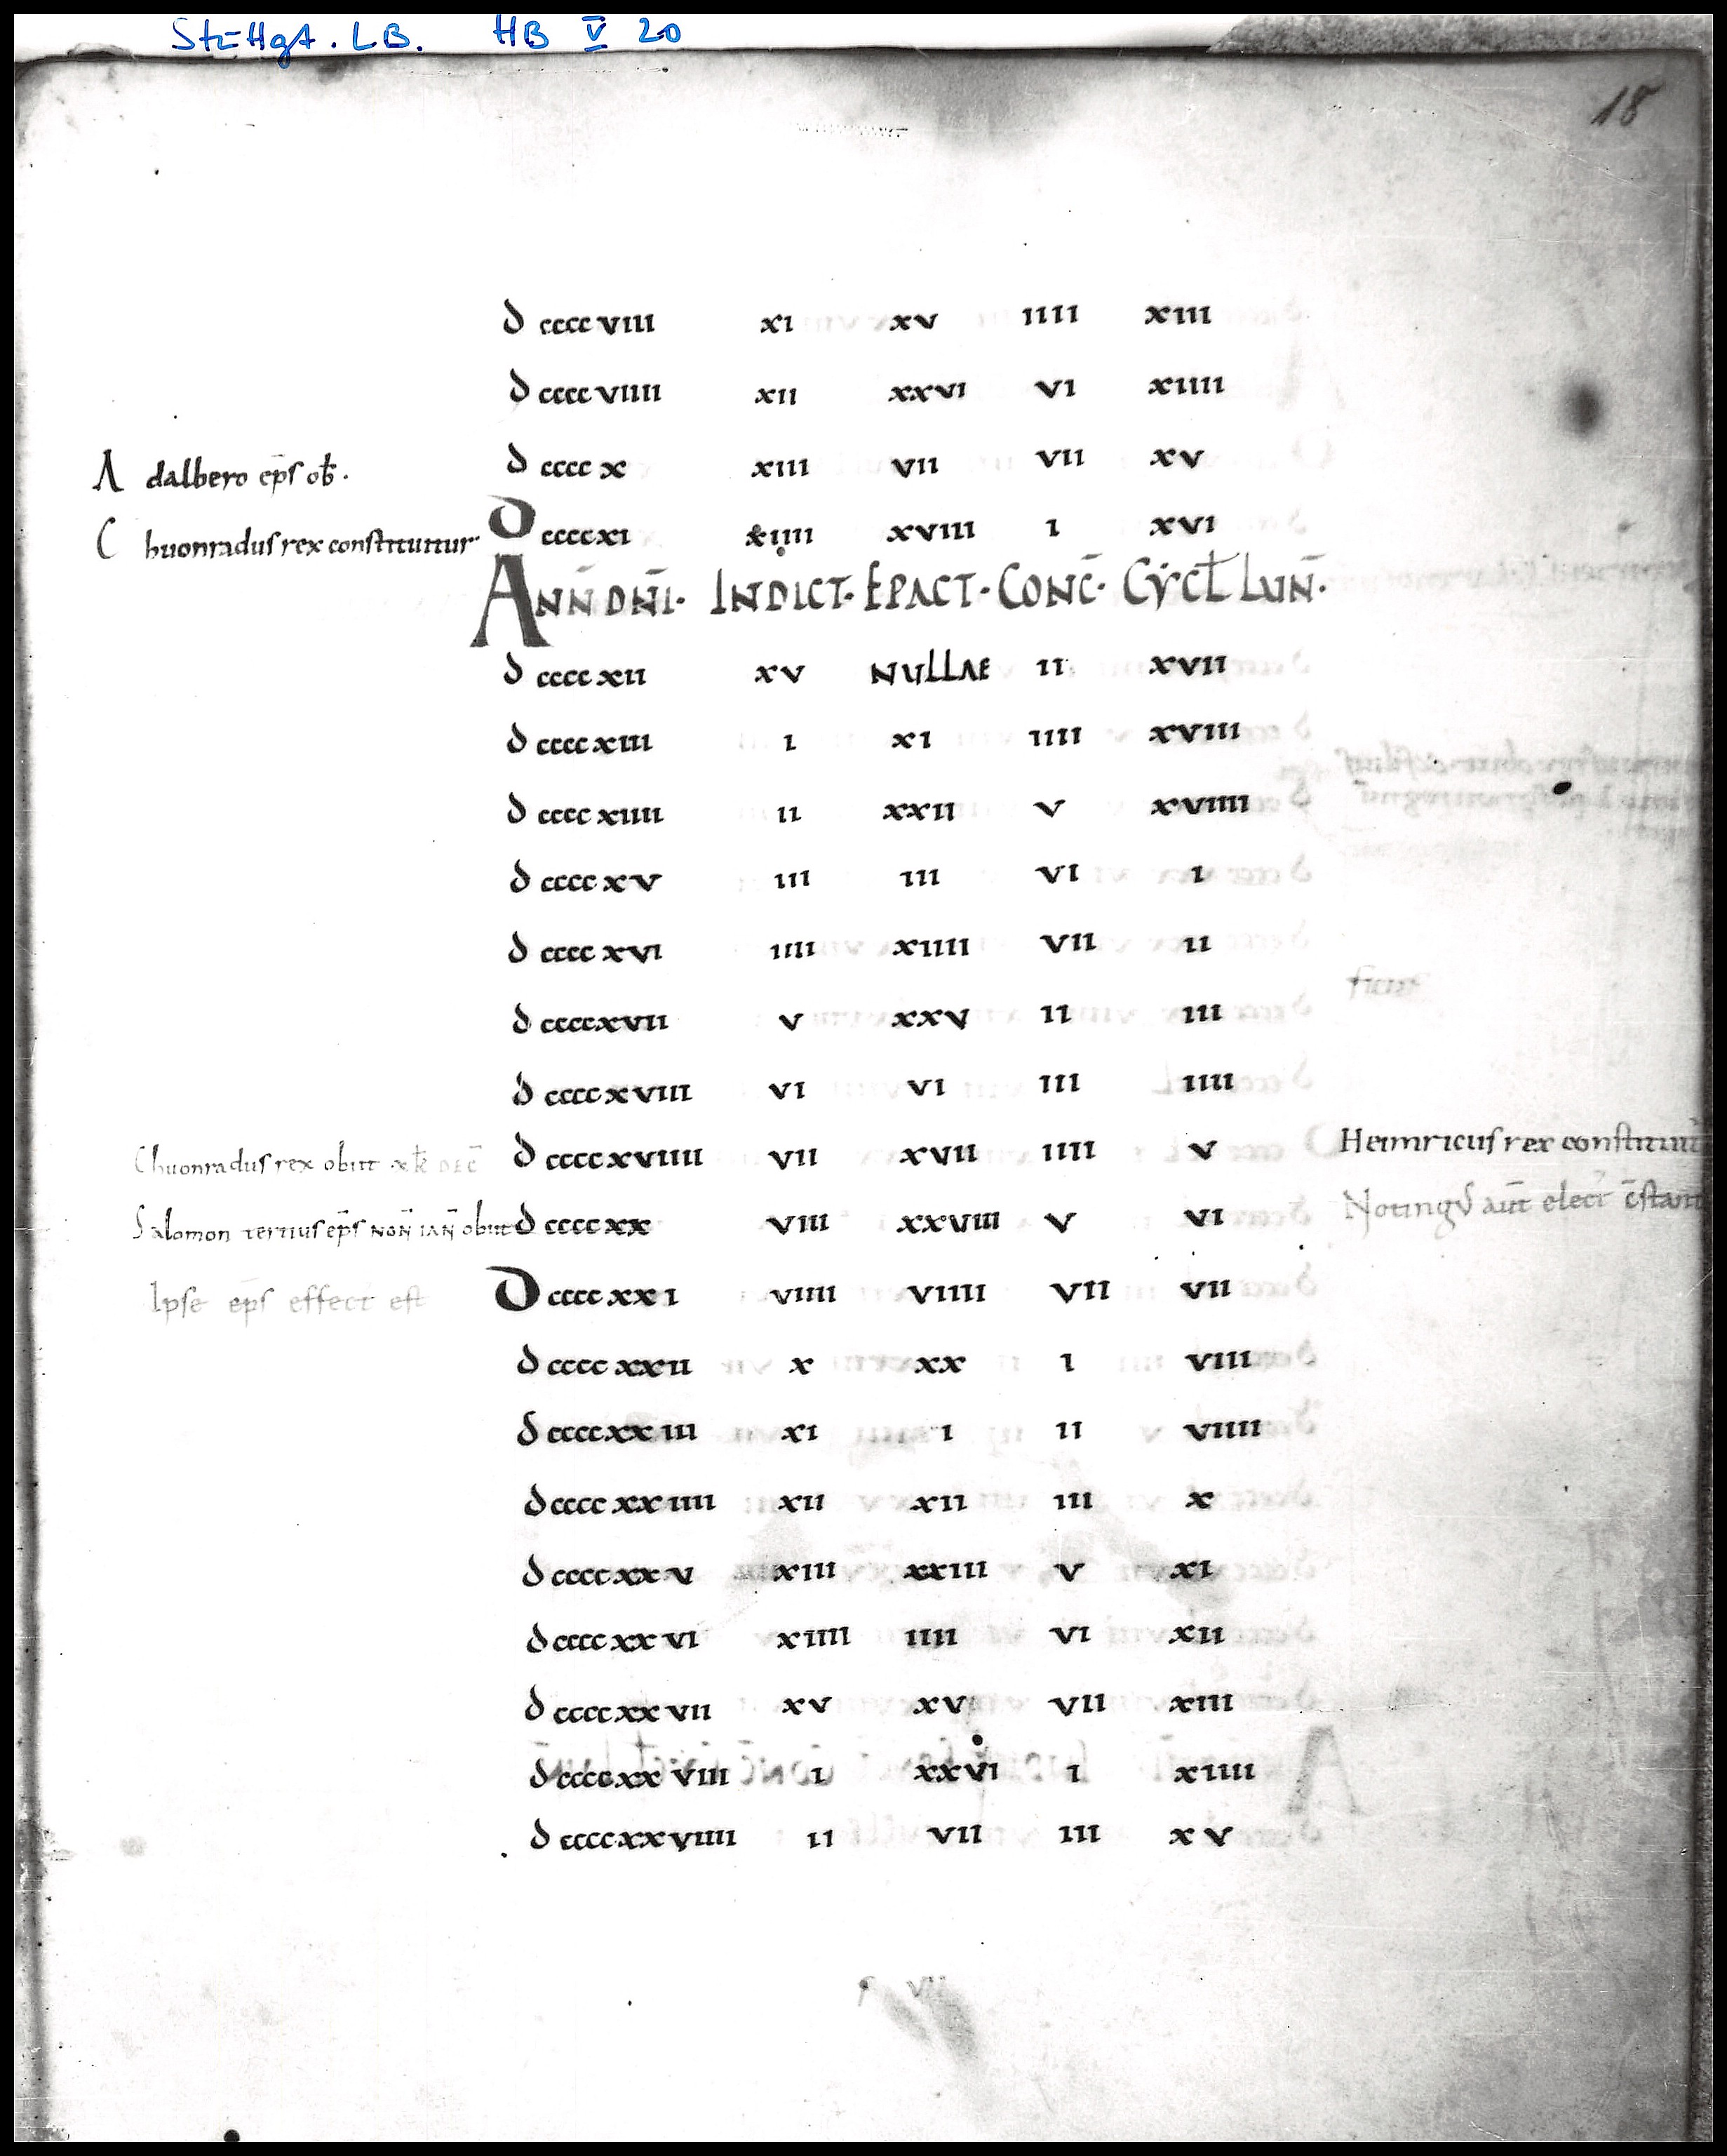 Sttgt. LB. HB V 20
18
dccccviii xi xv iiii xiii
dccccviiii xii xxvi vi xiiii
Adalbero ep̄s ob̄. dccccx xiii vii vii xv
Chuonradus rex constituitur Dccccxi xiiii xviii i xvi
ANN̄ DN̄I. INDICT. EPACT. CONC̄. CYCŁ LUN̄.
dccccxii xv NULLAE ii xvii
dccccxiii i xi iiii xviii
dccccxiiii ii xxii v xviiii
dccccxv iii iii vi i
dccccxvi iiii xiiii vii ii
dccccxvii v xxv ii iii
dccccxviii vi vi iii iiii
Chuonradus rex obiit x k̄ DEC̄ dccccxviiii vii xvii iiii v Heimricus rex constituit
Salomon tertius ep̄s NON̄ IAN̄ obiit dccccxx viii xxviii v vi Noting aut̄ elect c̄stant
Ipse ep̄s effect est Dccccxxi viiii viiii vii vii
dccccxxii x xx i viii
dccccxxiii xi i ii viiii
dccccxxiiii xii xii iii x
dccccxxv xiii xxiii v xi
dccccxxvi xiiii iiii vi xii
dccccxxvii xv xv vii xiii
dccccxxviii i xxvi i xiiii
dccccxxviiii ii vii iii xv